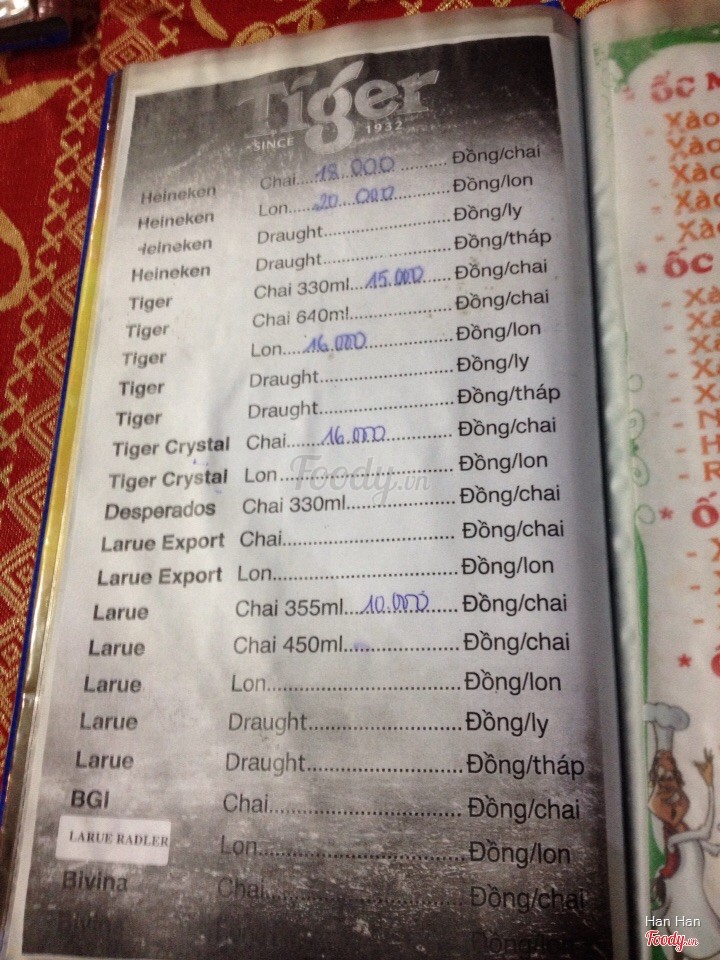 Tiger
SINCE 1932
Heineken Chai....18.000.......... Đồng/chai
Heineken Lon.....20.000..........Đồng/lon
Heineken Draught......................Đồng/ly
Heineken Draught......................Đồng/tháp
Tiger Chai 330ml...15.000......Đồng/chai
Tiger Chai 640ml..................Đồng/chai
Tiger Lon....16.000................Đồng/lon
Tiger Draught.......................Đồng/ly
Tiger Draught.......................Đồng/tháp
Tiger Crystal Chai......16.000............Đồng/chai
Tiger Crystal Lon..............................Đồng/lon
Desperados Chai 330ml...................Đồng/chai
Larue Export Chai.............................Đồng/chai
Larue Export Lon...............................Đồng/lon
Larue Chai 355ml...10.000.....Đồng/chai
Larue Chai 450ml...................Đồng/chai
Larue Lon................................Đồng/lon
Larue Draught.........................Đồng/ly
Larue Draught.........................Đồng/tháp
BGI Chai...............................Đồng/chai
LARUE RADLER Lon.................................Đồng/lon
Bivina Chai...............................Đồng/chai
Foody.vn
* ỐC
- Xào
- Xào
- Xào
* ỐC
Han Han
Foody.vn